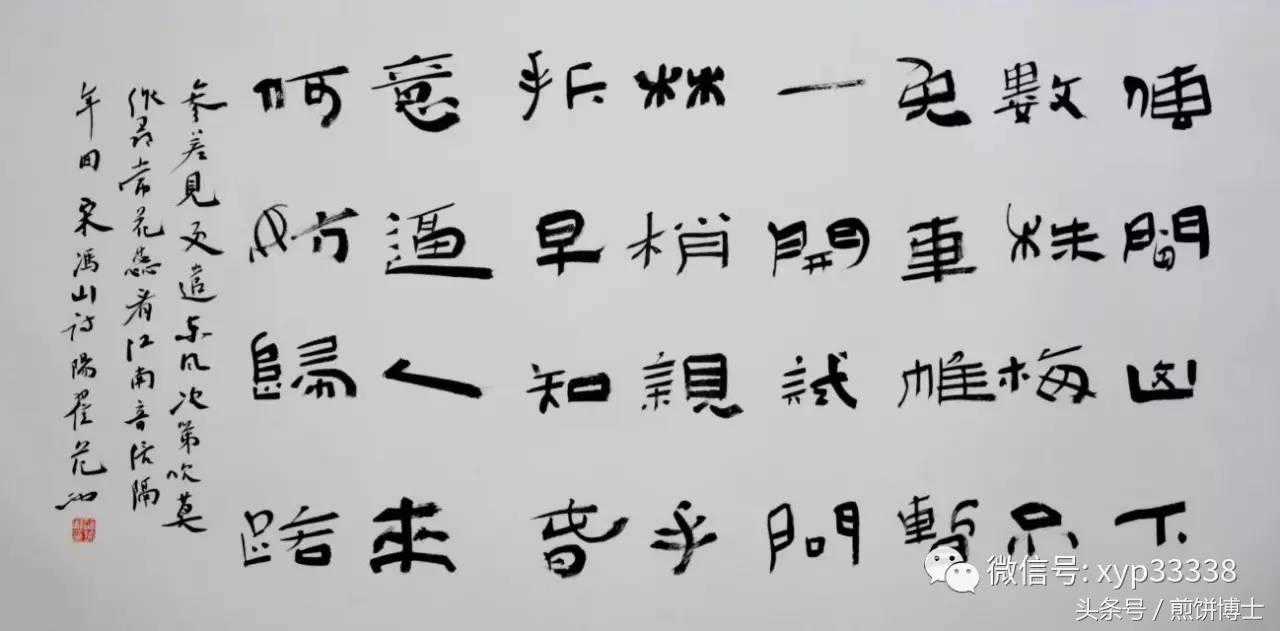 傳聞山下
數株梅不
免車帷暫
一開試問
林梢親手
折早知春
意逼人來
何妨歸路
參差見更遣東風次第吹莫
作尋常花蕊看江南音信隔
年回宋馮山詩陽翟范
微信号: xyp33338
头条号 / 煎饼博士